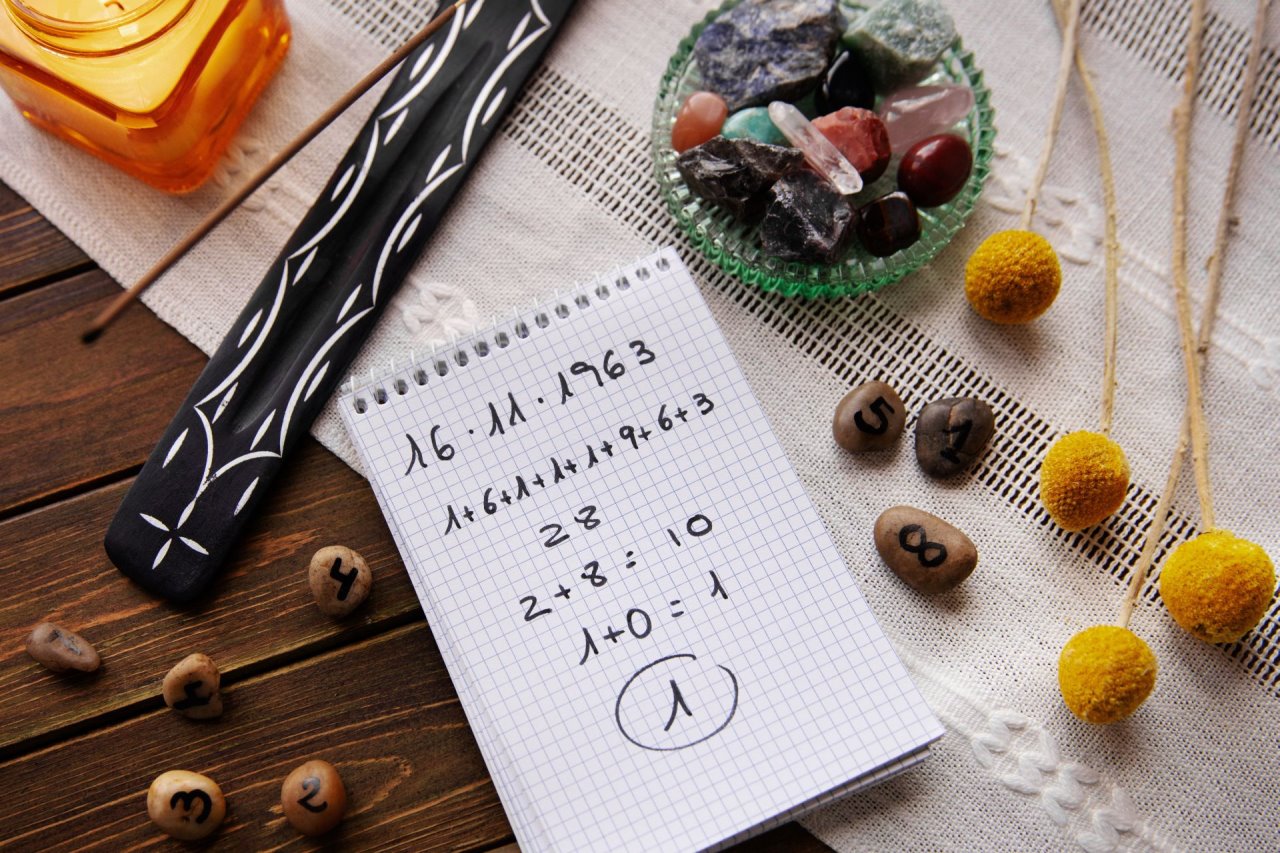 16.11.1963
1+6+1+1+1+9+6+3
28
2+8=10
1+0=1
1
5
1
8
4
3
2